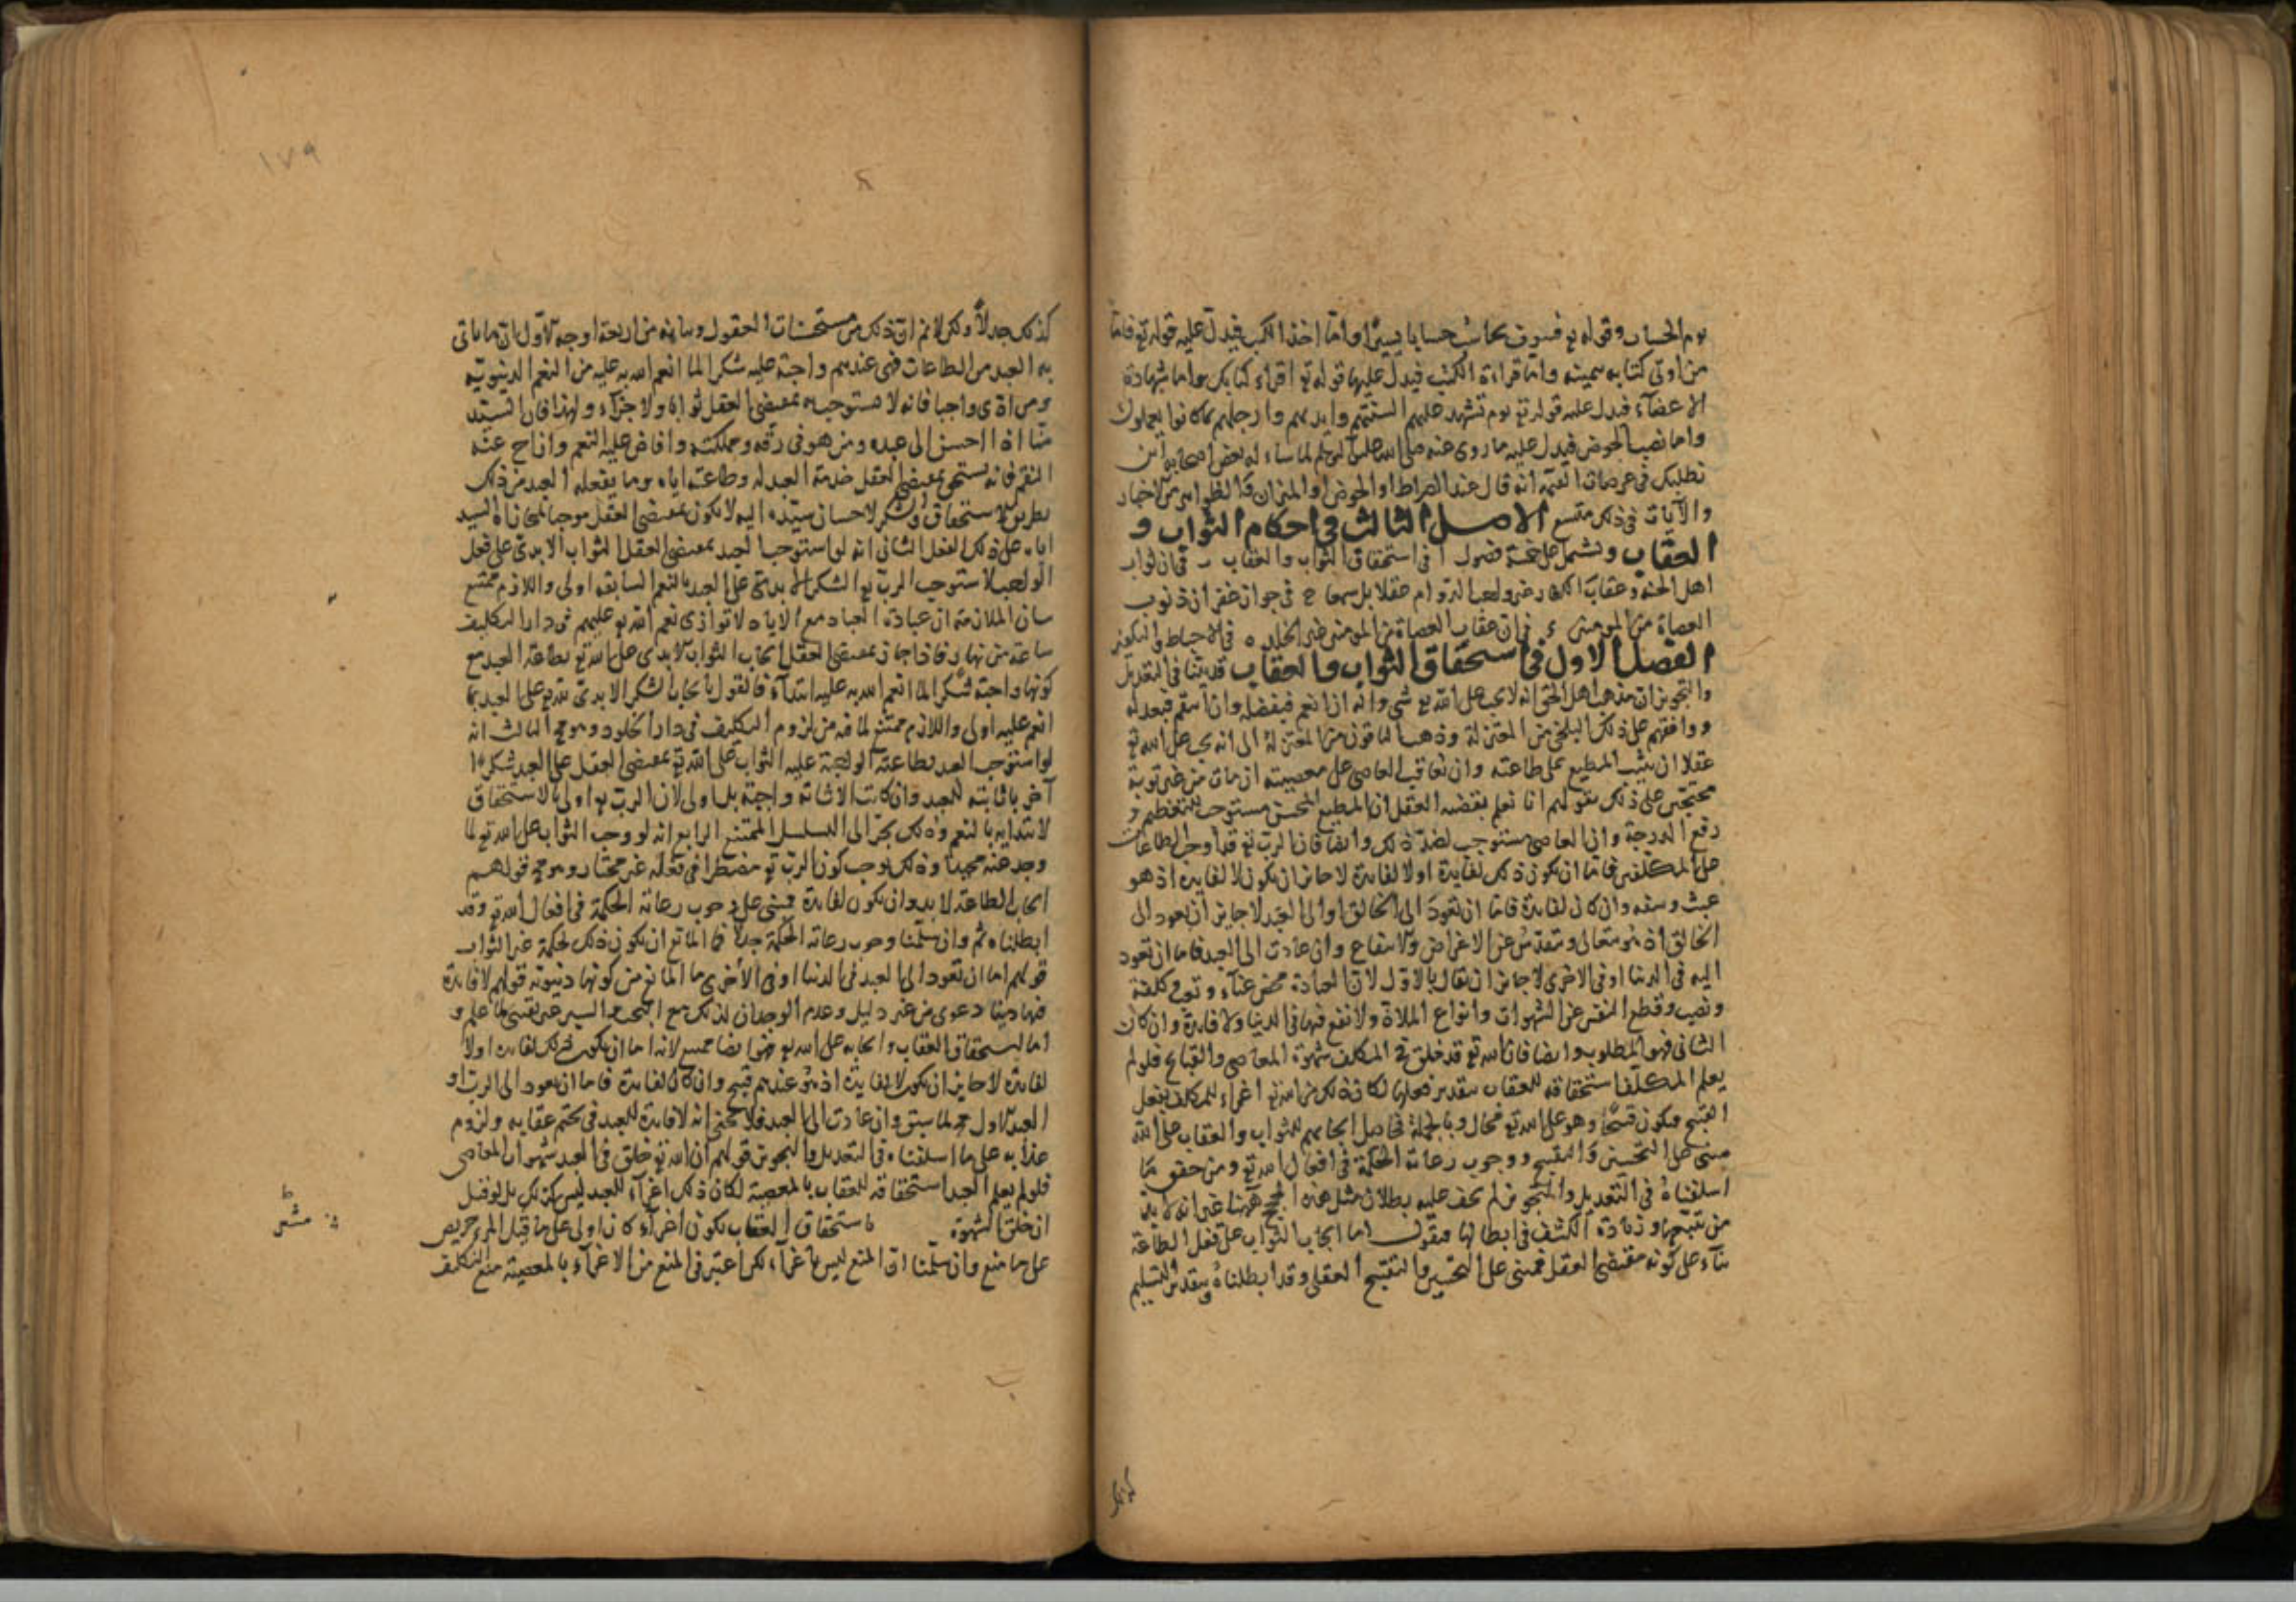 يوم الحساب وقوله تع فسوف يحاسب حسابا يسيرا واما اخذ الكتب فيدل عليه قوله تع فاما
من اوتى كتابه بيمينه واما قراءة الكتب فيدل عليها قوله تع اقراء كتابك واما شهادة
الاعضآء فيدل عليه قوله تع يوم تشهد عليهم السنتهم وايديهم وارجلهم بما كانوا يعملون
واما نصب الحوض فيدل عليه ما روى عنه صلى الله عليه وسلم لما سأله بعض اصحابه اين
نطلبك في عرصات القيمة انه قال عند الصراط او الحوض او الميزان والظواهر من الاخبار
والآيات في ذلك متسع الاصل الثالث في احكام الثواب و
العقاب ويشتمل على خمسة فصول ا في استحقاق الثواب والعقاب ب في ان ثواب
اهل الجنة وعقاب الكفار غير واجب الدوام عقلا بل سمعا ج في جواز غفران ذنوب
العصاة من المومنين ء في ان عقاب العصاة من المومنين غير مخلد ه في الاحباط والتكفير
الفصل الاول في استحقاق الثواب والعقاب قد بينا في التعديل
والتجوير ان مذهب اهل الحق انه لا يجب على الله تع شى وانه ان انعم فبفضله وان انتقم فبعدله
ووافقهم على ذلك البلخى من المعتزلة وذهب الباقون من المعتزلة الى انه يجب على الله تع
عقلا ان يثيب المطيع على طاعته وان يعاقب العاصى على معصيته ان مات من غير توبة
محتجين على ذلك بقولهم انا نعلم بقضية العقل ان المطيع المحسن مستوجب للتعظيم و
رفع الدرجة وان العاصى مستوجب لضد ذلك وايضا فان الرب تع قد اوجب الطاعات
على المكلفين فاما ان يكون ذلك لفايدة او لا لفايدة لا جايز ان يكون لا لفايدة اذ هو
عبث وسفه وان كان لفايدة فاما ان تعود الى الخالق او الى العبد لا جايز ان يعود الى
الخالق اذ هو متعالى ومتقدس عن الاغراض والانتفاع وان عادت الى العبد فاما ان تعود
اليه في الدنيا او في الاخرى لا جايز ان يقال بالاول لان العبادة محض عنآء وتوجه كلفة
ونصب وقطع النفس عن الشهوات وانواع الملاذ ولا نفع فيها في الدنيا ولا فايدة وان كان
الثانى فهو المطلوب وايضا فان الله تع قد خلق في المكلف شهوة المعاصى والقبايح فلو لم
يعلم المكلف استحقاقه للعقاب بتقدير فعلها لكان ذلك من الله تع اغراء للمكلف بفعل
القبيح فيكون قبيحا وهو على الله تع محال وبالجملة فحاصل ايجابهم للثواب والعقاب على الله
مبنى على التحسين والتقبيح ووجوب رعاية الحكمة في افعال الله تع ومن حقق ما
اسلفناه في التعديل والتجوير لم يخف عليه بطلان مثل هذه الحجج ههنا غير انه لا بد
من تتبعها وزيادة الكشف في ابطالها فنقول اما ايجاب الثواب على فعل الطاعة
بنآء على كونه مقتضى العقل فمبنى على التحسين والتقبيح العقلى وقد ابطلناه وبتقدير التسليم
كذلك جدلا ولكن لانم ان ذلك من مستحسنات العقول وبيانه من اربعة اوجه الاول ان ما ياتى
به العبد من الطاعات فهى عندهم واجبة عليه شكرا لما انعم الله به عليه من النعم الدنيوية
ومن ادى واجبا فانه لا يستوجب بمقتضى العقل ثوابا ولا جزآء ولهذا فان السيد
منا اذا احسن الى عبده ومن هو في رقه ومملكته وافاض عليه النعم وازاح عنه
النقم فانه يستحق بمقتضى العقل خدمة العبد له وطاعته اياه وما يفعله العبد من ذلك
بطريق الاستحقاق والشكر لاحسان سيده اليه لا يكون بمقتضى العقل موجبا لمجازاة السيد
اياه على ذلك الفعل الثانى انه لو استوجب العبد بمقتضى العقل الثواب الابدى على فعل
الواجب لاستوجب الرب تع الشكر الابدى على العبد بالنعم السابقة اولى واللازم ممتنع
بيان الملازمة ان عبادة العباد مع الاباد لا توازى نعم الله تع عليهم في دار التكليف
ساعة من نهار فاذا جاز بمقتضى العقل ايجاب الثواب الابدى على الله تع بطاعة العبد مع
كونها واجبة شكرا لما انعم الله به عليه ابتدآء فالقول بايجاب الشكر الابدى لله تع على العبد بما
انعم عليه اولى واللازم ممتنع لما فيه من لزوم التكليف في دار الخلود وهو مح الثالث انه
لو استوجب العبد بطاعته الواجبة عليه الثواب على الله تع بمقتضى العقل على العبد شكرا
آخر باثابته للعبد وان كانت الاثابة واجبة بل اولى لان الرب تع اولى بالاستحقاق
لابتدايه بالنعم وذلك يجر الى التسلسل الممتنع الرابع انه لو وجب الثواب على الله تع لما
وجد عنه محيدا وذلك يوجب كون الرب تع مضطرا في فعله غير مختار وهو مح قولهم
ايجاب الطاعة لا بد وان يكون لفايدة فمبنى على وجوب رعاية الحكمة في افعال الله تع وقد
ابطلناه ثم وان سلمنا وجوب رعاية الحكمة جدلا فما المانع ان يكون ذلك لحكمة غير الثواب
قولهم اما ان تعود الى العبد في الدنيا او في الأخرى ما المانع من كونها دنيوية قولهم لا فايدة
فيها دينا دعوى من غير دليل وعدم الوجدان لذلك مع البحث والسبر غير يقينى لما علم و
اما استحقاق العقاب وايجابه على الله تع فهو ايضا ممتنع لانه اما ان يكون ذلك لفايدة او لا
لفايدة لا جايز ان يكون لا لفايدة اذ هو عندهم قبيح وان كان لفايدة فاما ان يعود الى الرب او
العبد الاول مح لما سبق وان عادت الى العبد فلا يخفى انه لا فايدة للعبد في تحتم عقابه ولزوم
عذابه على ما اسلفناه في التعديل والتجوير قولهم ان الله تع خلق في العبد شهوات المعاصى
فلو لم يعلم العبد استحقاقه للعقاب بالمعصية لكان ذلك اغرآء للعبد ليس كذلك بل لو قيل
ان خلق الشهوة باستحقاق العقاب يكون اغرآء كان اولى على ما قيل المرء حريص
على ما منع وان سلمنا ان المنع ليس باغرآء لكن اعتبر في المنع من الاغرآء بالمعصية منع التكليف
١٧٩